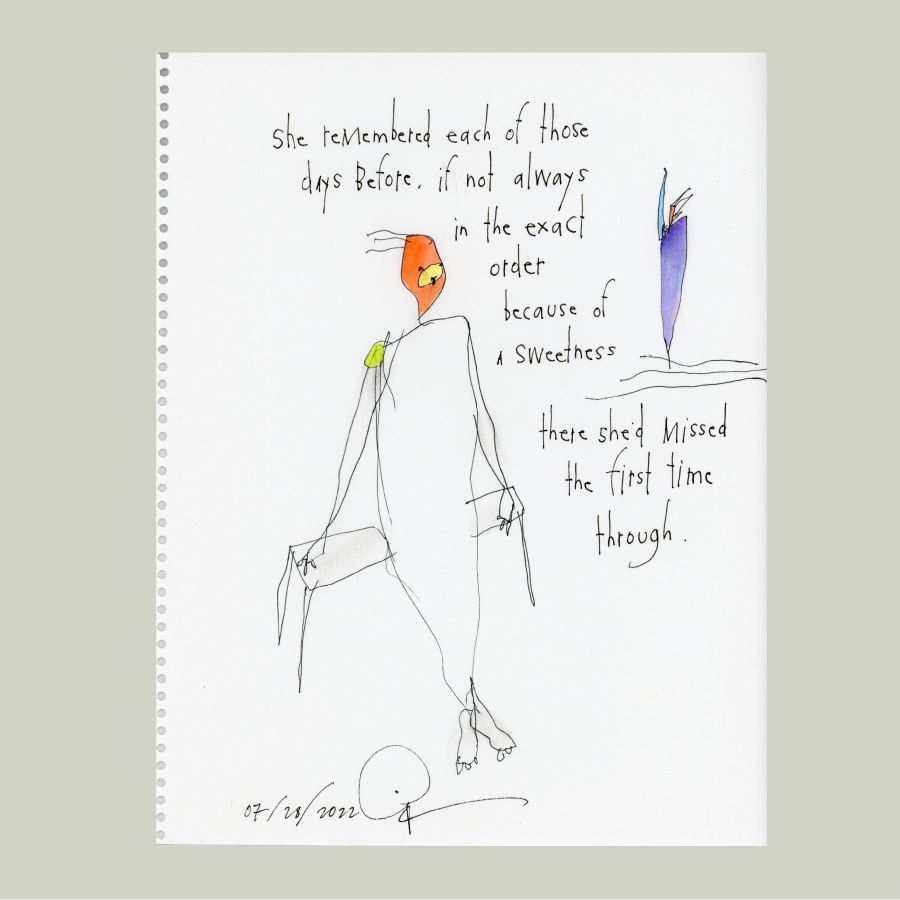 she remembered each of those
days Before, if not always
in the exact
order
because of
a sweetness
there she'd Missed
the first time
through.
07/28/2022